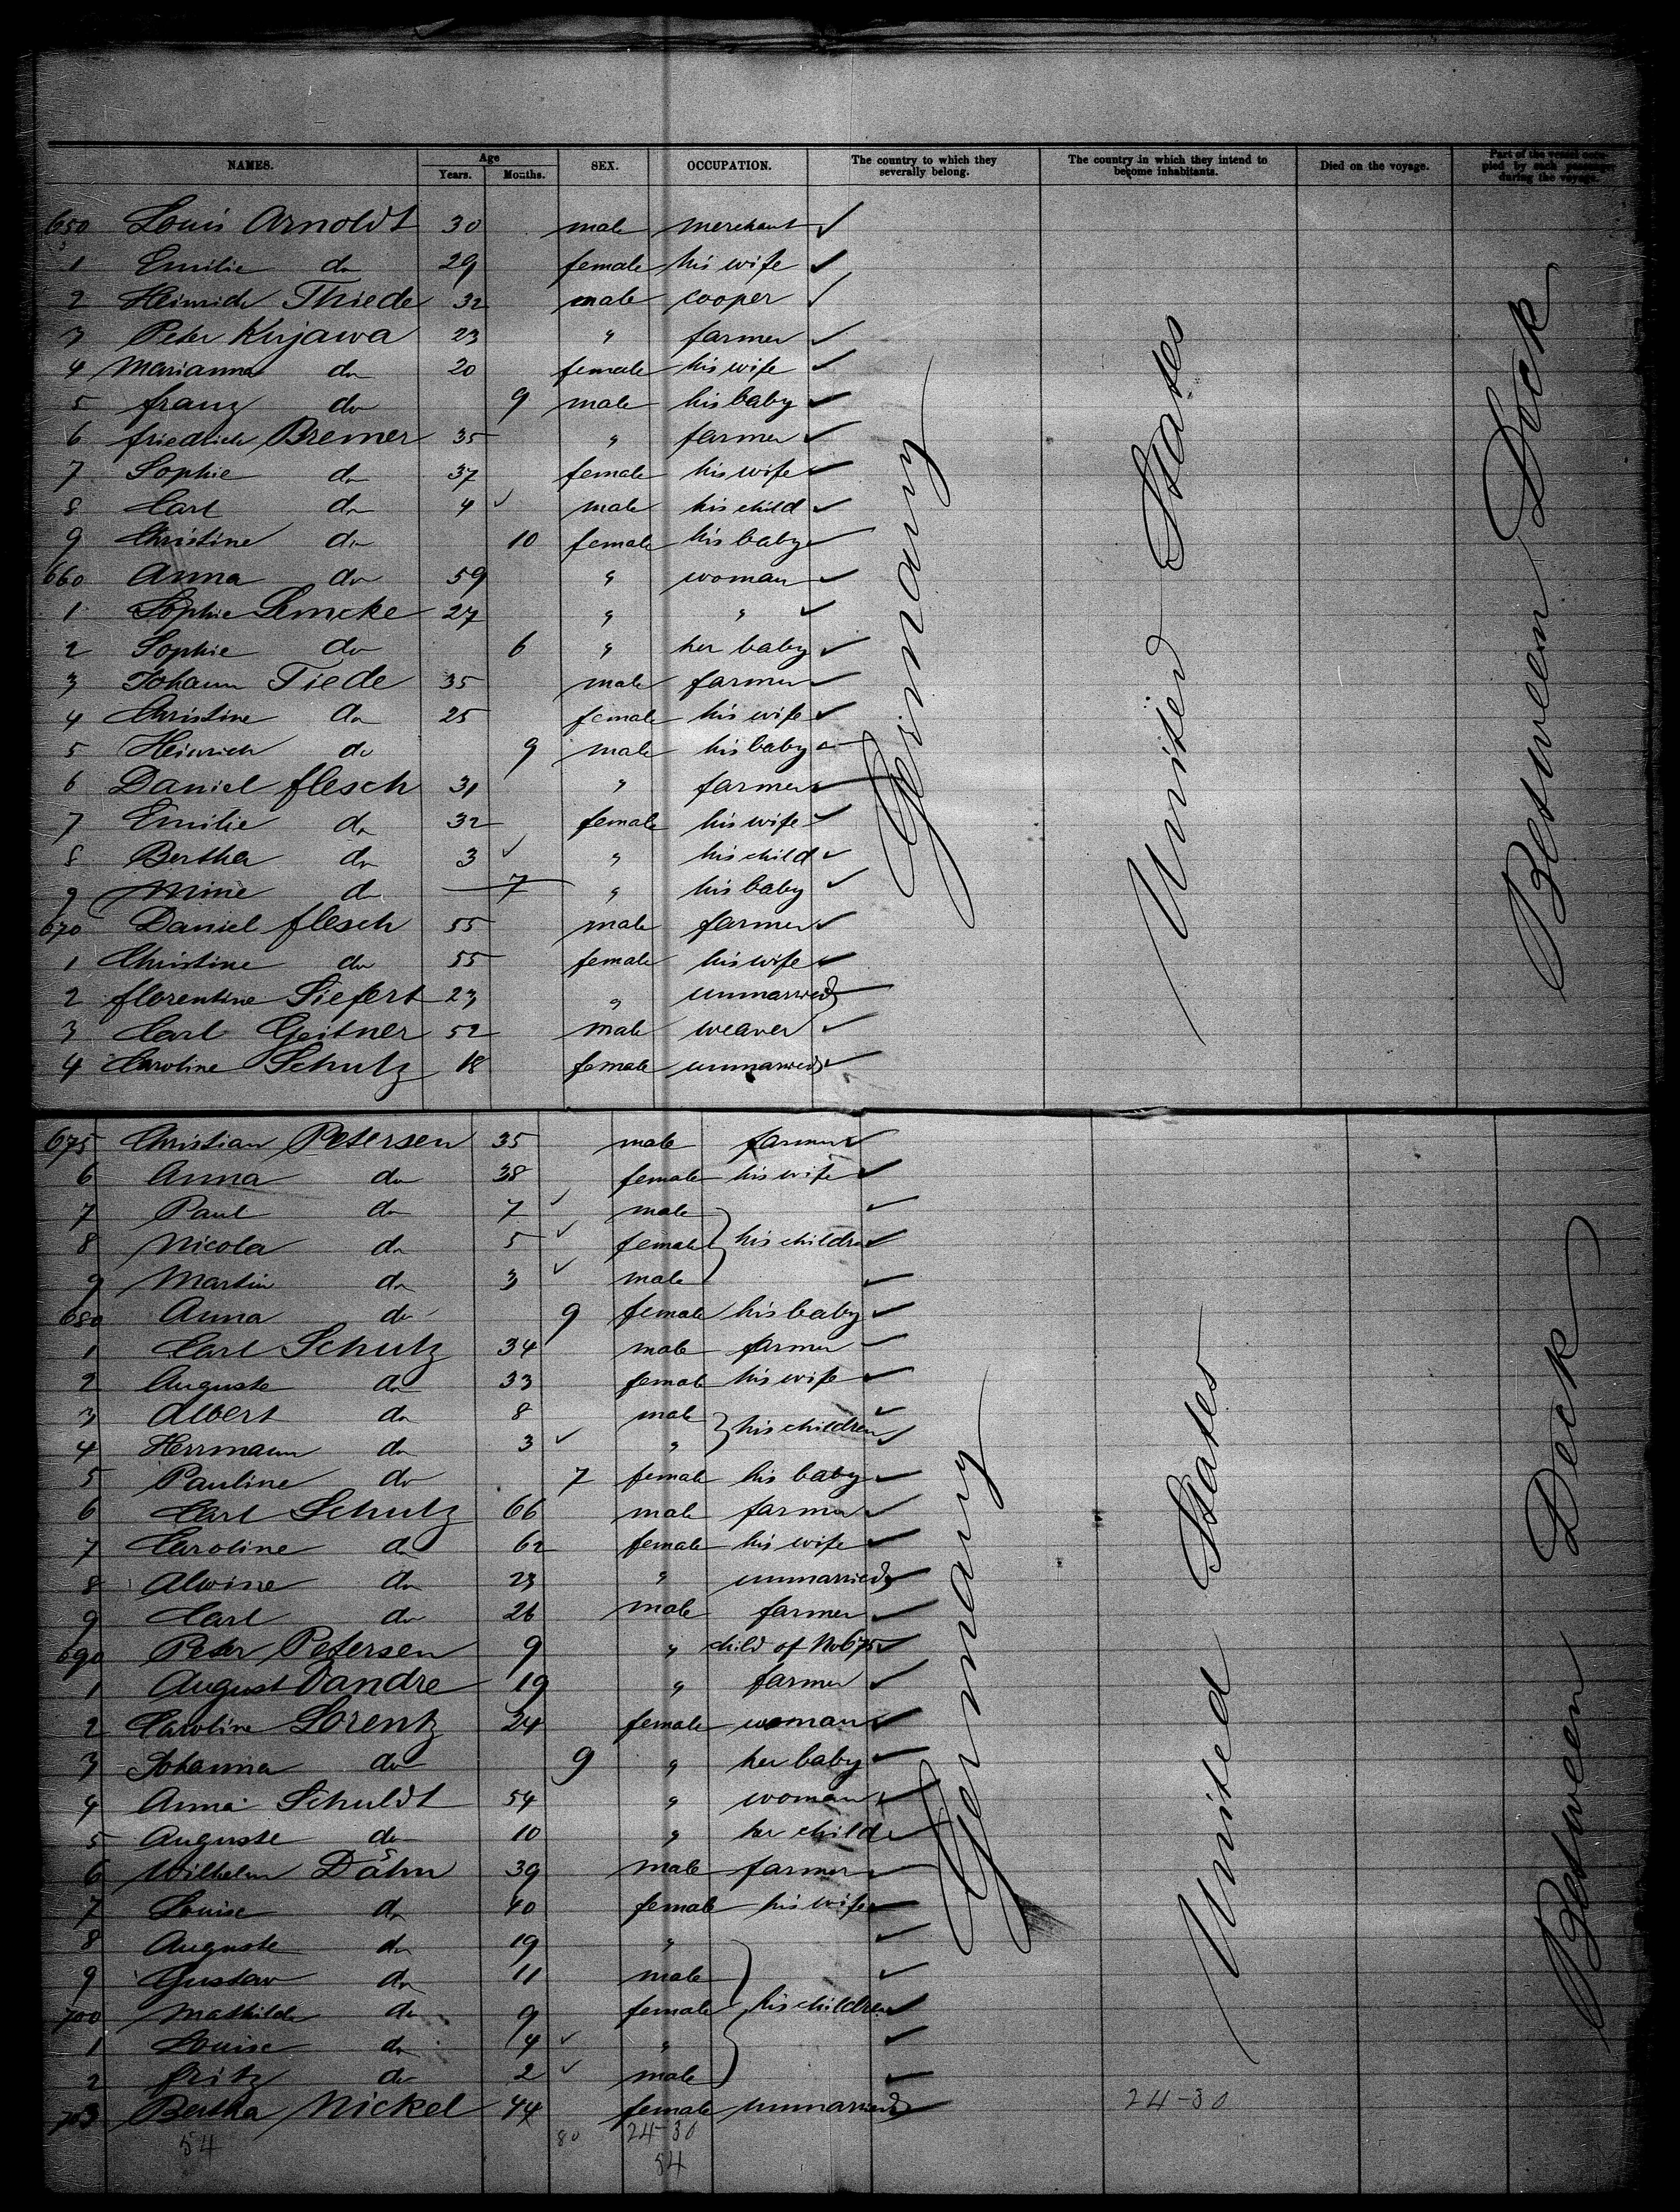 NAMES. Age Years. Months. SEX. OCCUPATION. The country to which they severally belong. The country in which they intend to become inhabitants. Died on the voyage. Part of the vessel occupied by each passenger during the voyage.
650 Louis Arnoldt 30 male merchant ✓
1 Emilie do 29 female his wife ✓
2 Heinrich Thiede 32 male cooper ✓
3 Peter Kujawa 23 " farmer ✓
4 Marianna do 20 female his wife ✓
5 franz do 9 male his baby ✓
6 friedrich Bremer 35 " farmer ✓
7 Sophie do 37 female his wife ✓
8 Carl do 4 ✓ male his child ✓
9 Christine do 10 female his baby ✓
660 Anna do 59 " woman ✓
1 Sophie Lemcke 27 " " ✓
2 Sophie do 6 " her baby ✓
3 Johann Tiede 35 male farmer ✓
4 Christine do 25 female his wife ✓
5 Heinrich do 9 male his baby ✓
6 Daniel flesch 31 " farmer ✓
7 Emilie do 32 female his wife ✓
8 Bertha do 3 ✓ " his child ✓
9 Mine do 7 " his baby ✓
670 Daniel flesch 55 male farmer ✓
1 Christine do 55 female his wife ✓
2 florentine Siefert 23 " unmarried ✓
3 Carl Geitner 52 male weaver ✓
4 Caroline Schulz 18 female unmarried ✓
Germany
United States
Between Deck
675 Christian Petersen 35 male farmer ✓
6 Anna do 38 female his wife ✓
7 Paul do 7 ✓ male ✓
8 Nicola do 5 ✓ female his children ✓
9 Martin do 3 ✓ male ✓
680 Anna do 9 female his baby ✓
1 Carl Schulz 34 male farmer ✓
2 Auguste do 33 female his wife ✓
3 Albert do 8 male his children ✓
4 Herrmann do 3 ✓ " ✓
5 Pauline do 7 female his baby ✓
6 Carl Schulz 66 male farmer ✓
7 Caroline do 62 female his wife ✓
8 Alwine do 23 " unmarried ✓
9 Carl do 26 male farmer ✓
690 Peter Petersen 9 " child of No 675 ✓
1 August Dandre 19 " farmer ✓
2 Caroline Lorentz 24 female woman ✓
3 Johanna do 9 " her baby ✓
4 Anna Schuldt 54 " woman ✓
5 Auguste do 10 " her child ✓
6 Wilhelm Dähn 39 male farmer ✓
7 Louise do 40 female his wife ✓
8 Auguste do 19 " ✓
9 Gustav do 11 male ✓
700 Mathilde do 9 female his children ✓
1 Louise do 4 ✓ " ✓
2 fritz do 2 ✓ male ✓
703 Bertha Nickel 44 female unmarried ✓
Germany
United States
Between Deck
24-30
54 80 24-30
54